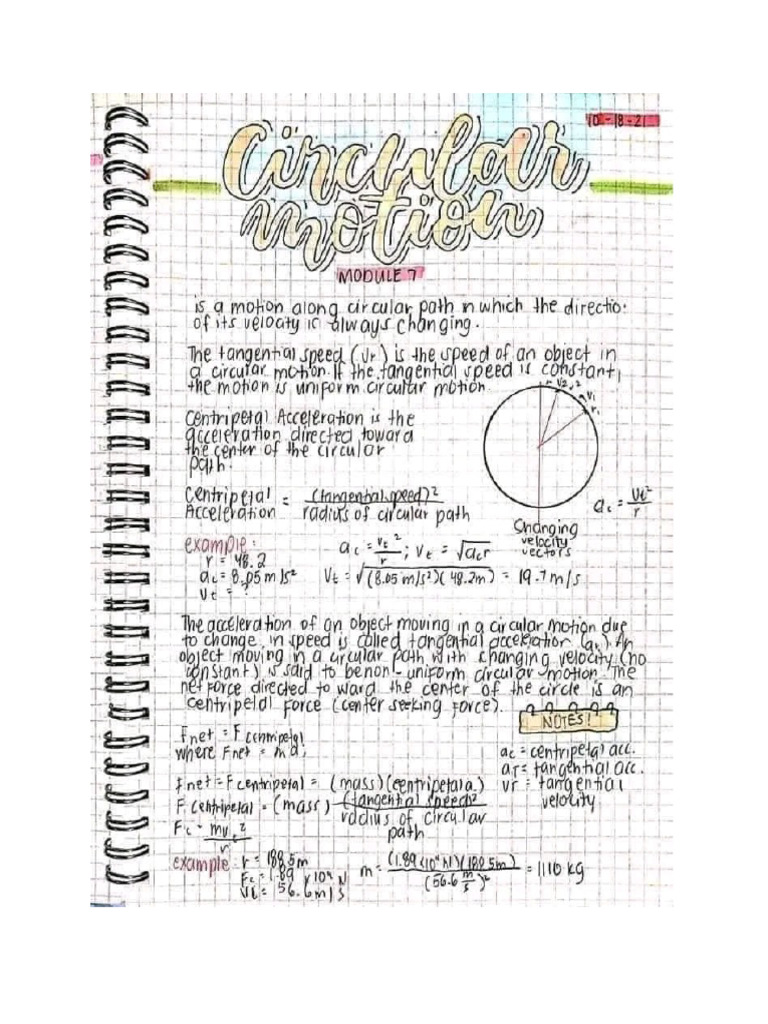 10-18-21
Circular
motion
MODULE 7
is a motion along circular path in which the directio
of its velocity is always changing.
The tangential speed (Vr) is the speed of an object in
a circular motion. If the tangential speed is constant,
the motion is uniform circular motion.
Centripetal Acceleration is the
acceleration directed toward
the center of the circular
path.
Centripetal Acceleration = (tangential speed)² / radius of circular path
V2, 2
V1
r1
ac = Vt² / r
Changing
velocity
vectors
example:
r = 48.2
ac = 8.05 m/s²
Vt = ?
ac = Vt² / r ; Vt = √acr
Vt = √(8.05 m/s²)(48.2m) = 19.7 m/s
The acceleration of an object moving in a circular motion due
to change in speed is called tangential acceleration (ar) An
object moving in a circular path with changing velocity (no
constant) is said to be non-uniform circular motion. The
net force directed to ward the center of the circle is an
centripetal force (center seeking force).
NOTES!
ac = centripetal acc.
ar = tangential acc.
vr = tangential
velocity
Fnet = F centripetal
where Fnet = ma,
Fnet = F centripetal = (mass)(centripetal a.)
F centripetal = (mass) (tangential speed)² / radius of circular path
Fc = mvt² / r
example: r = 188.5m
Fc = 1.89 x 10⁴ N
Vt = 56.6 m/s
m = (1.89 x 10⁴ N)(188.5m) / (56.6 m/s)² = 1110 kg